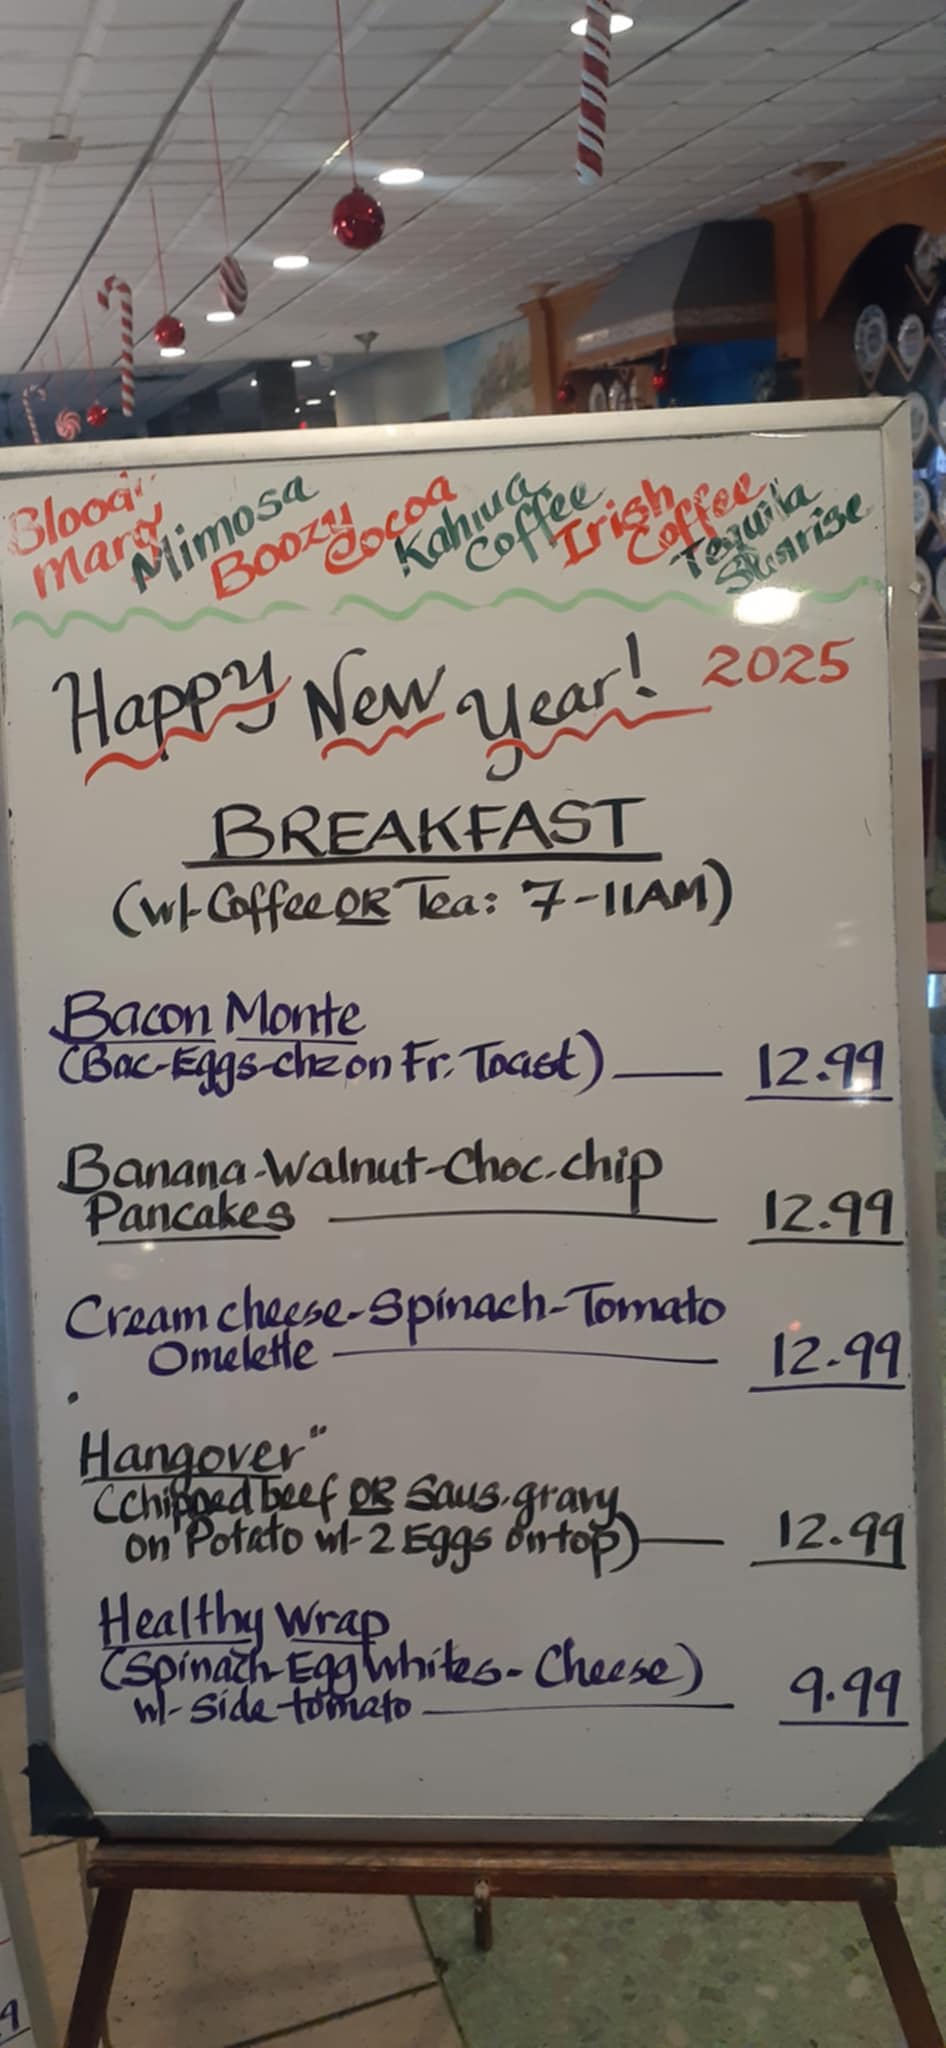 Bloody Mary
Mimosa
Boozy Cocoa
Kahlua Coffee
Irish Coffee
Tequila Sunrise
Happy New Year! 2025
BREAKFAST
(w/-Coffee OR Tea: 7-11AM)
Bacon Monte
(Bac-Eggs-chz on Fr. Toast) 12.99
Banana-Walnut-Choc.chip
Pancakes 12.99
Cream cheese-Spinach-Tomato
Omelette 12.99
Hangover"
(chipped beef OR Saus.gravy
on Potato w/-2 Eggs ontop) 12.99
Healthy Wrap
(Spinach-Egg Whites-Cheese)
w/-Side tomato 9.99